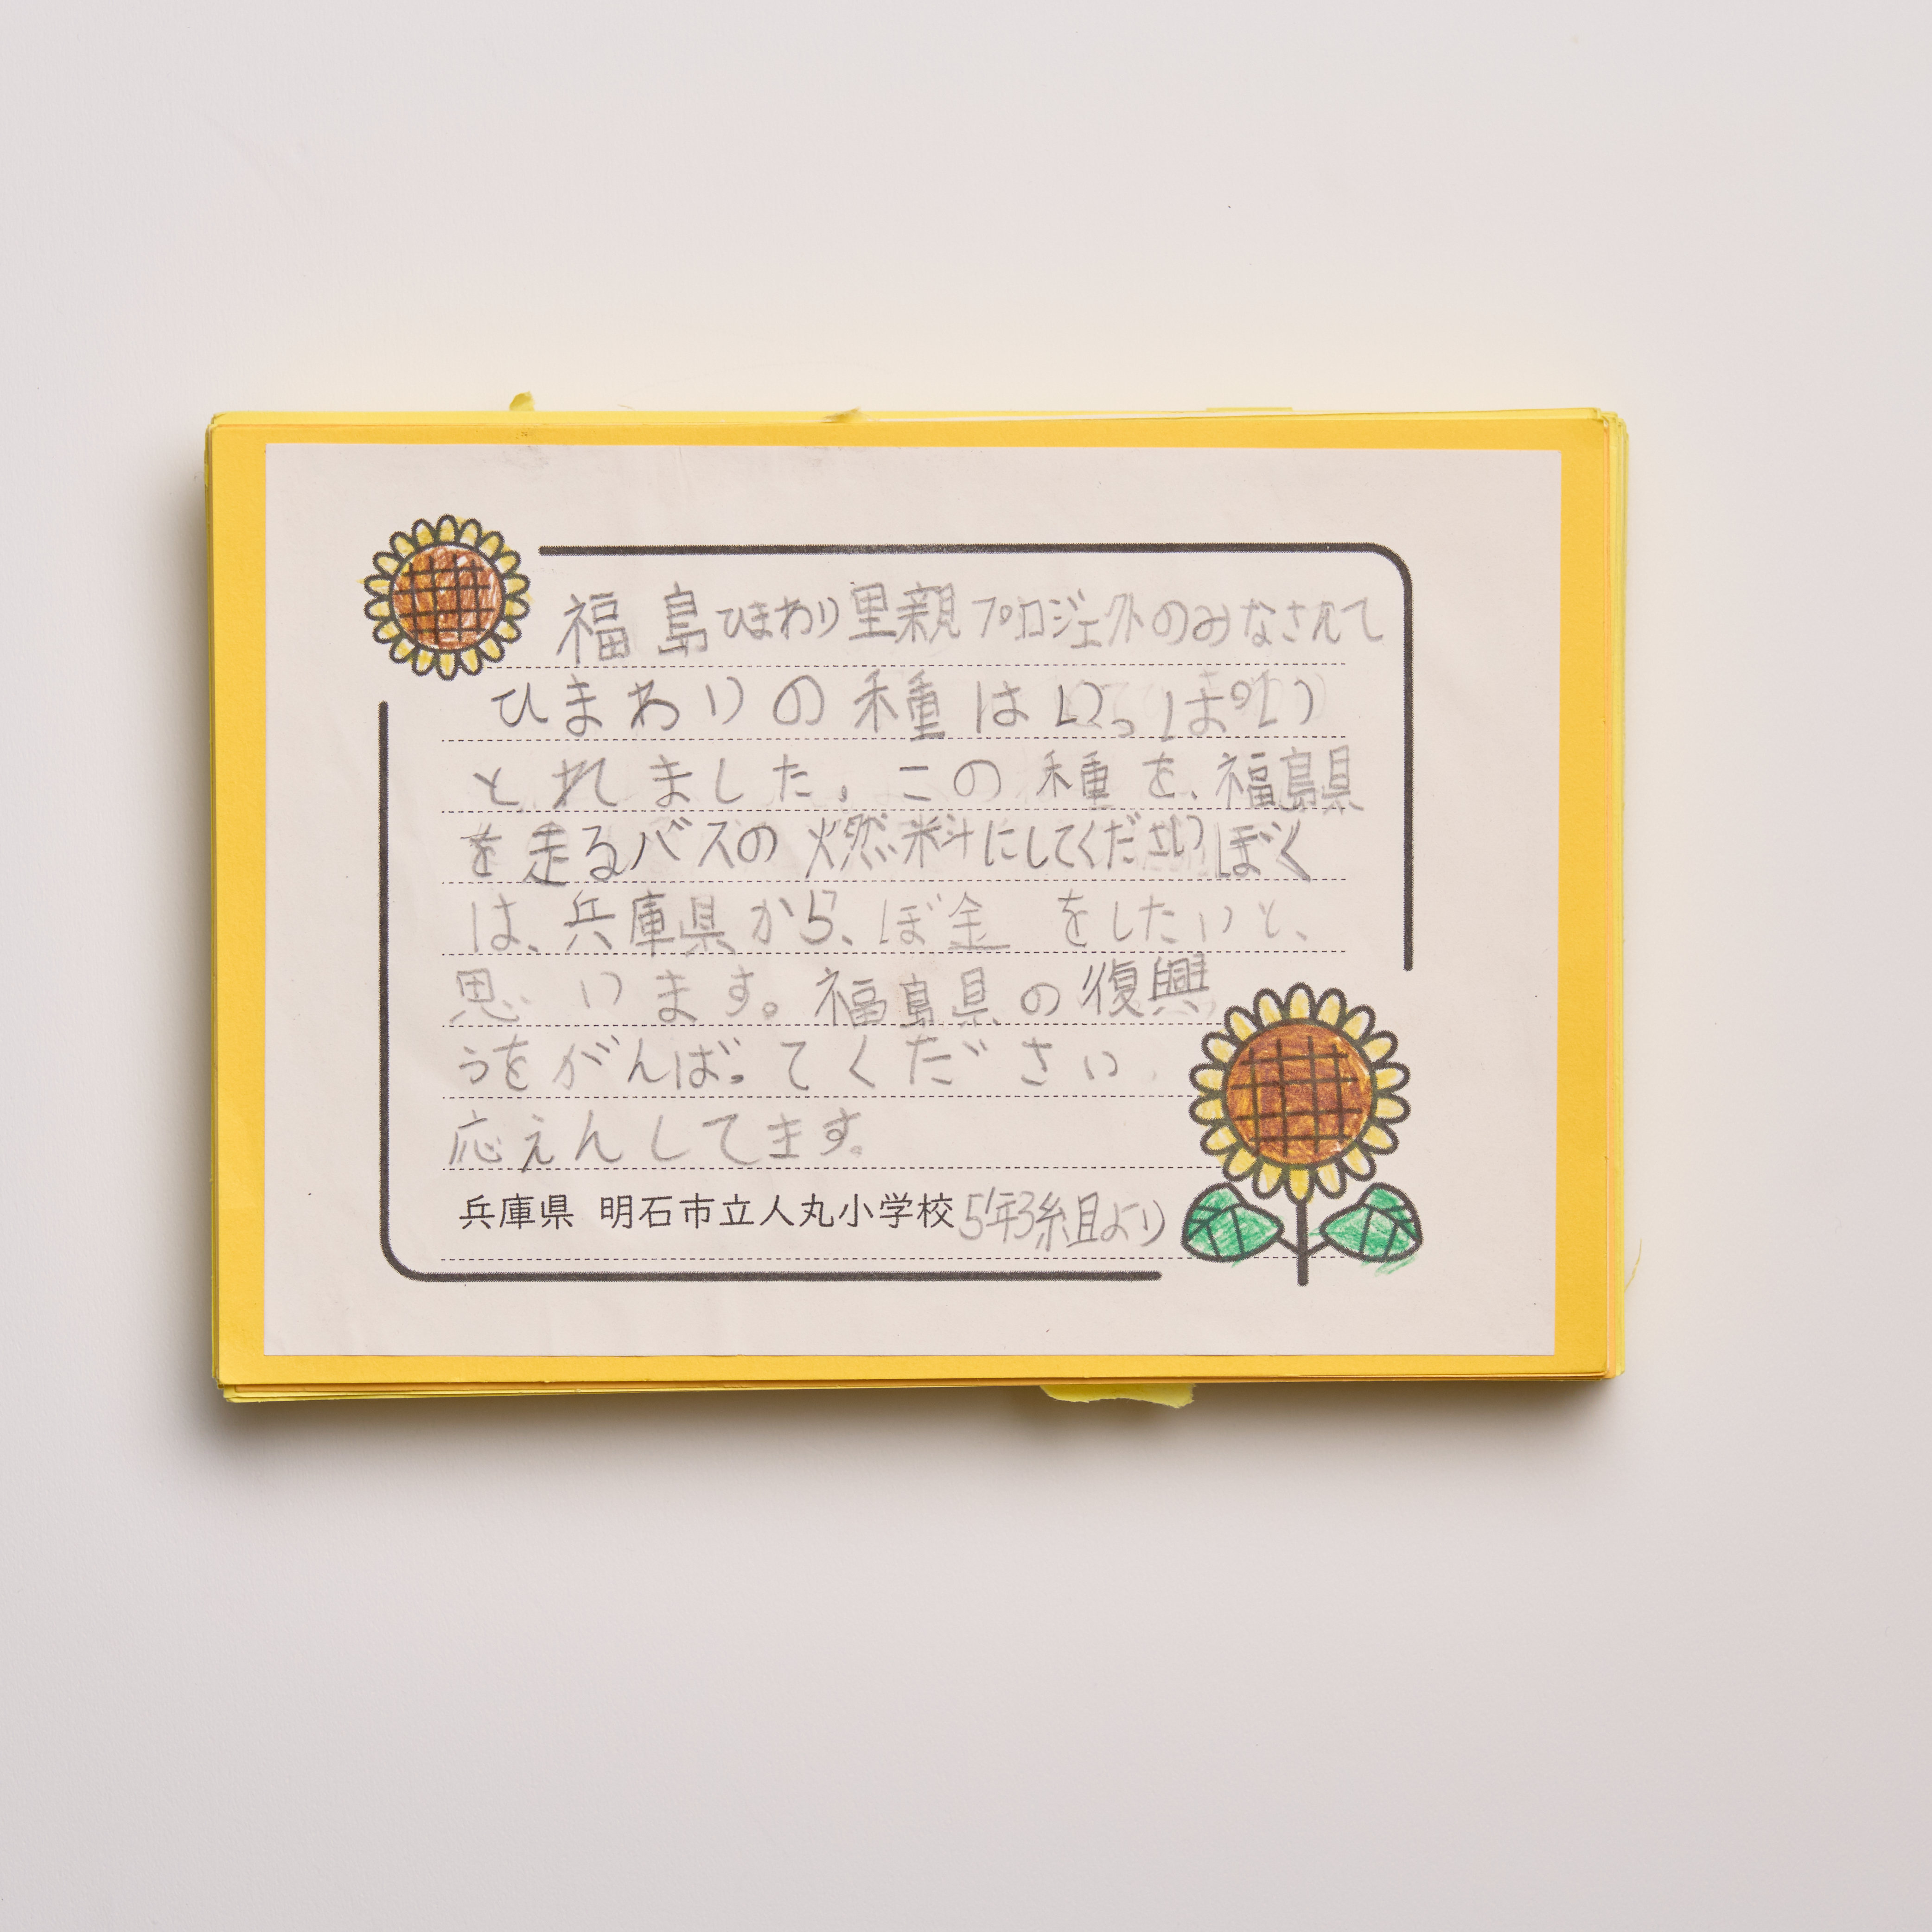 福島ひまわり里親プロジェクトのみなさんて
ひまわりの種はいっぱい
とれました。この種を、福島県
を走るバスの燃料にしてくださいぼく
は、兵庫県から、ぼ金をしたいと、
思います。福島県の復興
うをがんばってください
応えんしてます。
兵庫県 明石市立人丸小学校5年3組より